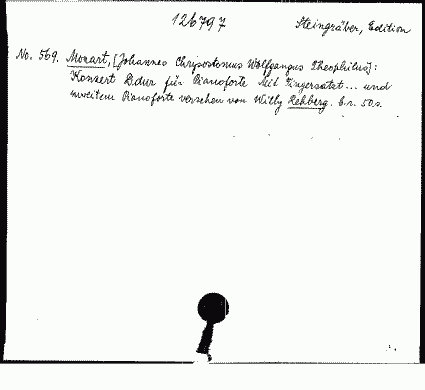 126797 Steingräber, Edition
No. 569. Mozart, [Johannes Chrysostomus Wolfgangus Theophilus]:
Konzert D.dur für Pianoforte Mit Fingersatz... und
zweitem Pianoforte versehen von Willy Rehberg. b.r. 50 s.